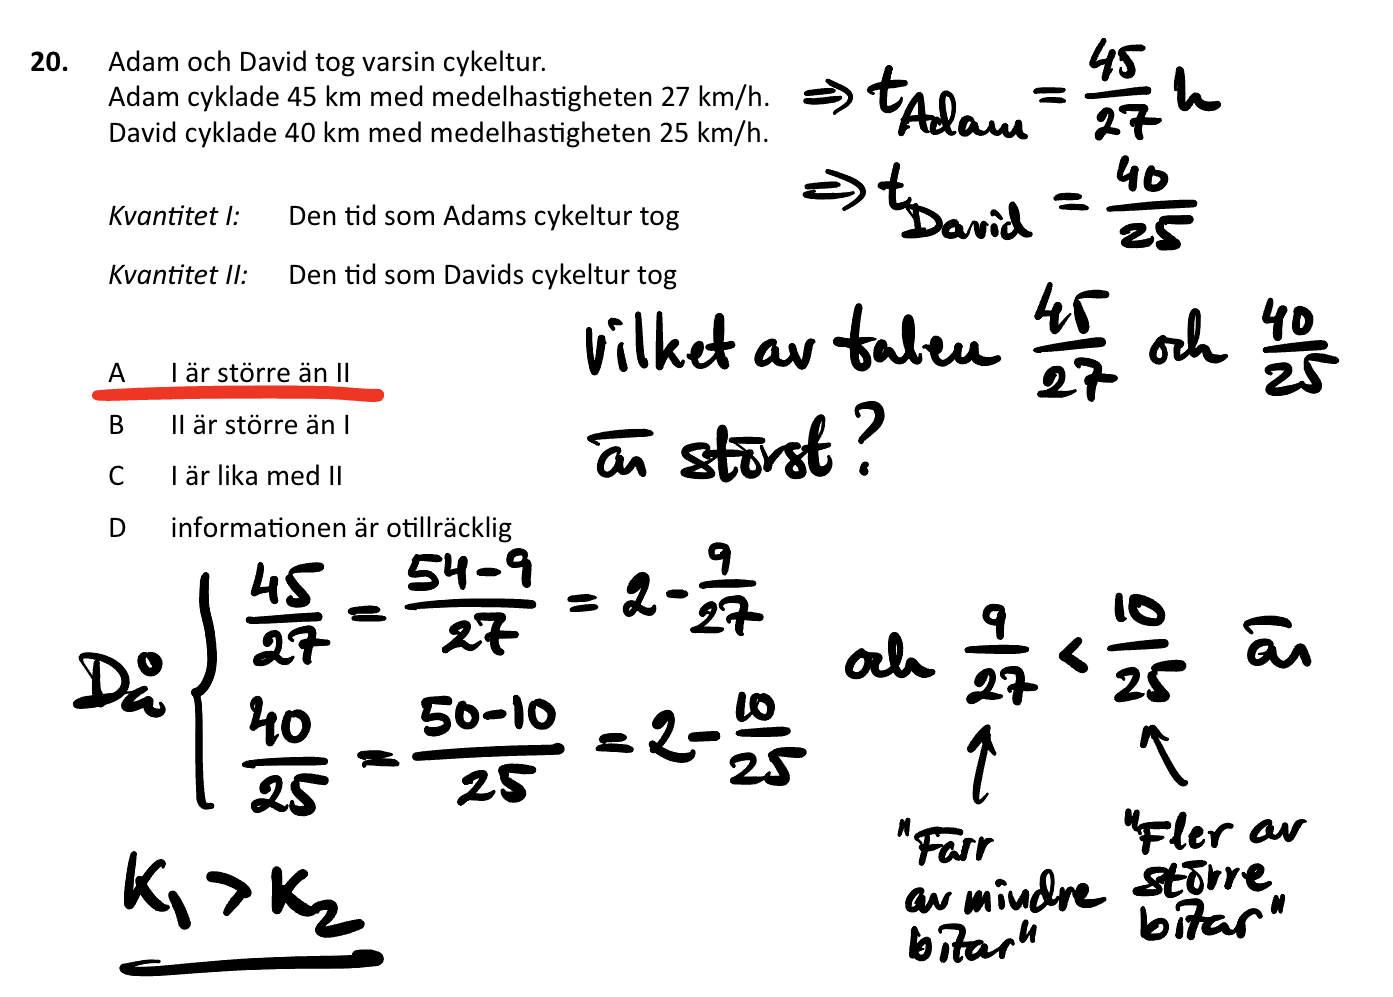 20. Adam och David tog varsin cykeltur.
Adam cyklade 45 km med medelhastigheten 27 km/h. ⇒ t_Adam = 45/27 h
David cyklade 40 km med medelhastigheten 25 km/h. ⇒ t_David = 40/25
Kvantitet I: Den tid som Adams cykeltur tog
Kvantitet II: Den tid som Davids cykeltur tog
Vilket av talen 45/27 och 40/25
är störst?
A I är större än II
B II är större än I
C I är lika med II
D informationen är otillräcklig
Då { 45/27 = (54-9)/27 = 2 - 9/27
40/25 = (50-10)/25 = 2 - 10/25
och 9/27 < 10/25 är
"Färr
av mindre
bitar"
"Fler av
större
bitar"
K₁ > K₂